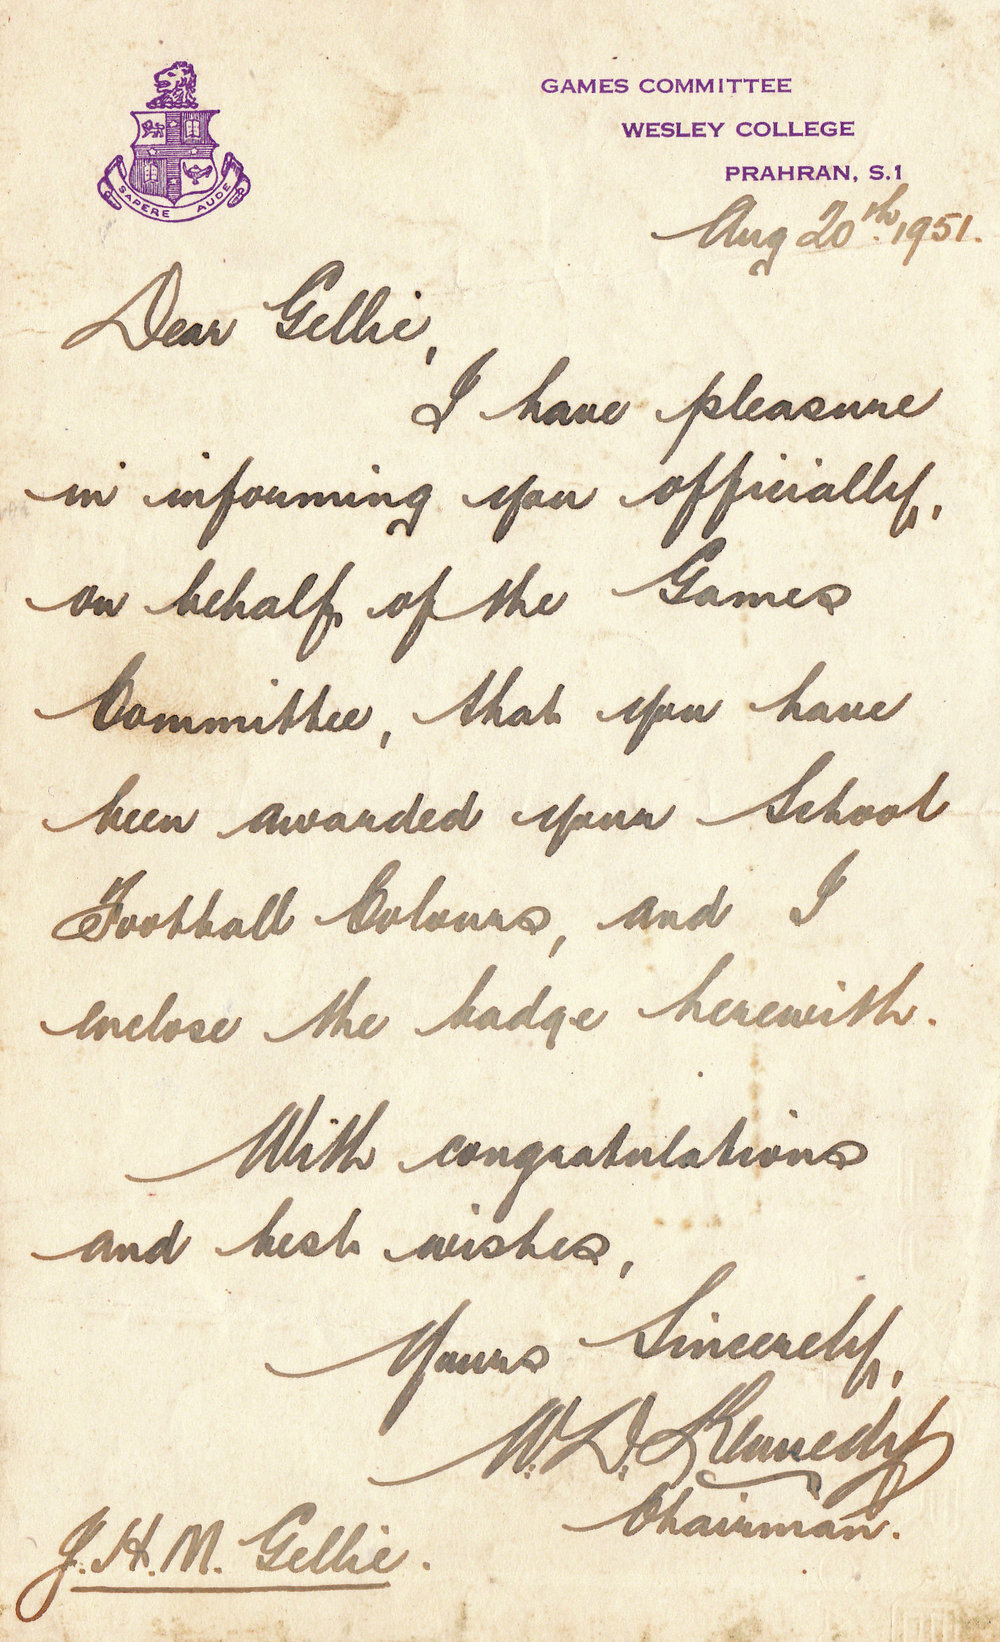 SAPERE AUDE
GAMES COMMITTEE
WESLEY COLLEGE
PRAHRAN, S.1
Aug 20th. 1951.
Dear Gellie,
I have pleasure
in informing you officially,
on behalf of the Games
Committee, that you have
been awarded your School
Football Colours, and I
enclose the badge herewith.
With congratulations
and best wishes,
Yours Sincerely,
W. D. Kennedy
Chairman.
J. H. M. Gellie.